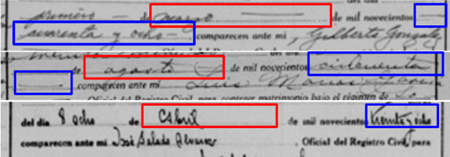 primero — de marzo — de mil novecientos —
cuarenta y ocho — comparecen ante mi, Gilberto Gonzalez
de agosto — de mil novecientos cincuenta
— comparecen ante mi Luis
Oficial del Registro Civil para contraer matrimonio bajo el régimen de
del día 8 ocho de Abril de mil novecientos treinta y ocho
comparecen ante mi José Salado Alvarez, Oficial del Registro Civil, para